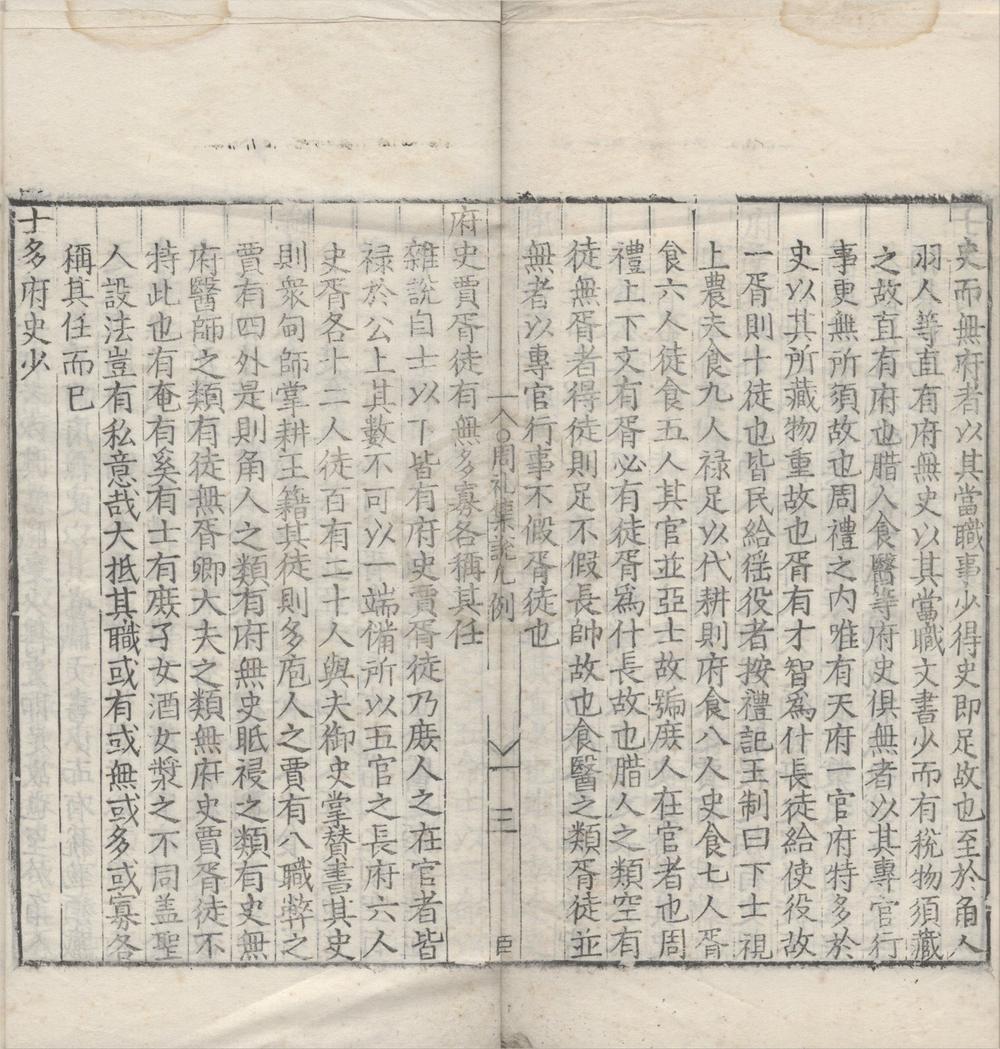 士史而無府者以其當職事少得史即足故也至於角人
羽人等直有府無史以其當職文書少而有稅物須藏
之故直有府也腊人食醫等府史俱無者以其專官行
事更無所須故也周禮之內唯有天府一官府特多於
史以其所藏物重故也胥有才智爲什長徒給使役故
一胥則十徒也皆民給徭役者按禮記王制曰下士視
上農夫食九人祿足以代耕則府食八人史食七人胥
食六人徒食五人其官並亞士故號庶人在官者也周
禮上下文有胥必有徒胥爲什長故也腊人之類空有
徒無胥者得徒則足不假長帥故也食醫之類胥徒並
無者以專官行事不假胥徒也
周礼集說凡例
三
臣
府史賈胥徒有無多寡各稱其任
雜說自士以下皆有府史賈胥徒乃庶人之在官者皆
祿於公上其數不可以一端備所以五官之長府六人
史胥各十二人徒百有二十人與夫御史掌贊書其史
則衆甸師掌耕王籍其徒則多庖人之賈有八職幣之
賈有四外是則角人之類有府無史眡祲之類有史無
府醫師之類有徒無胥卿大夫之類無府史賈胥徒不
特此也有奄有奚有士有庶子女酒女漿之不同盖聖
人設法豈有私意哉大抵其職或有或無或多或寡各
稱其任而已
士多府史少